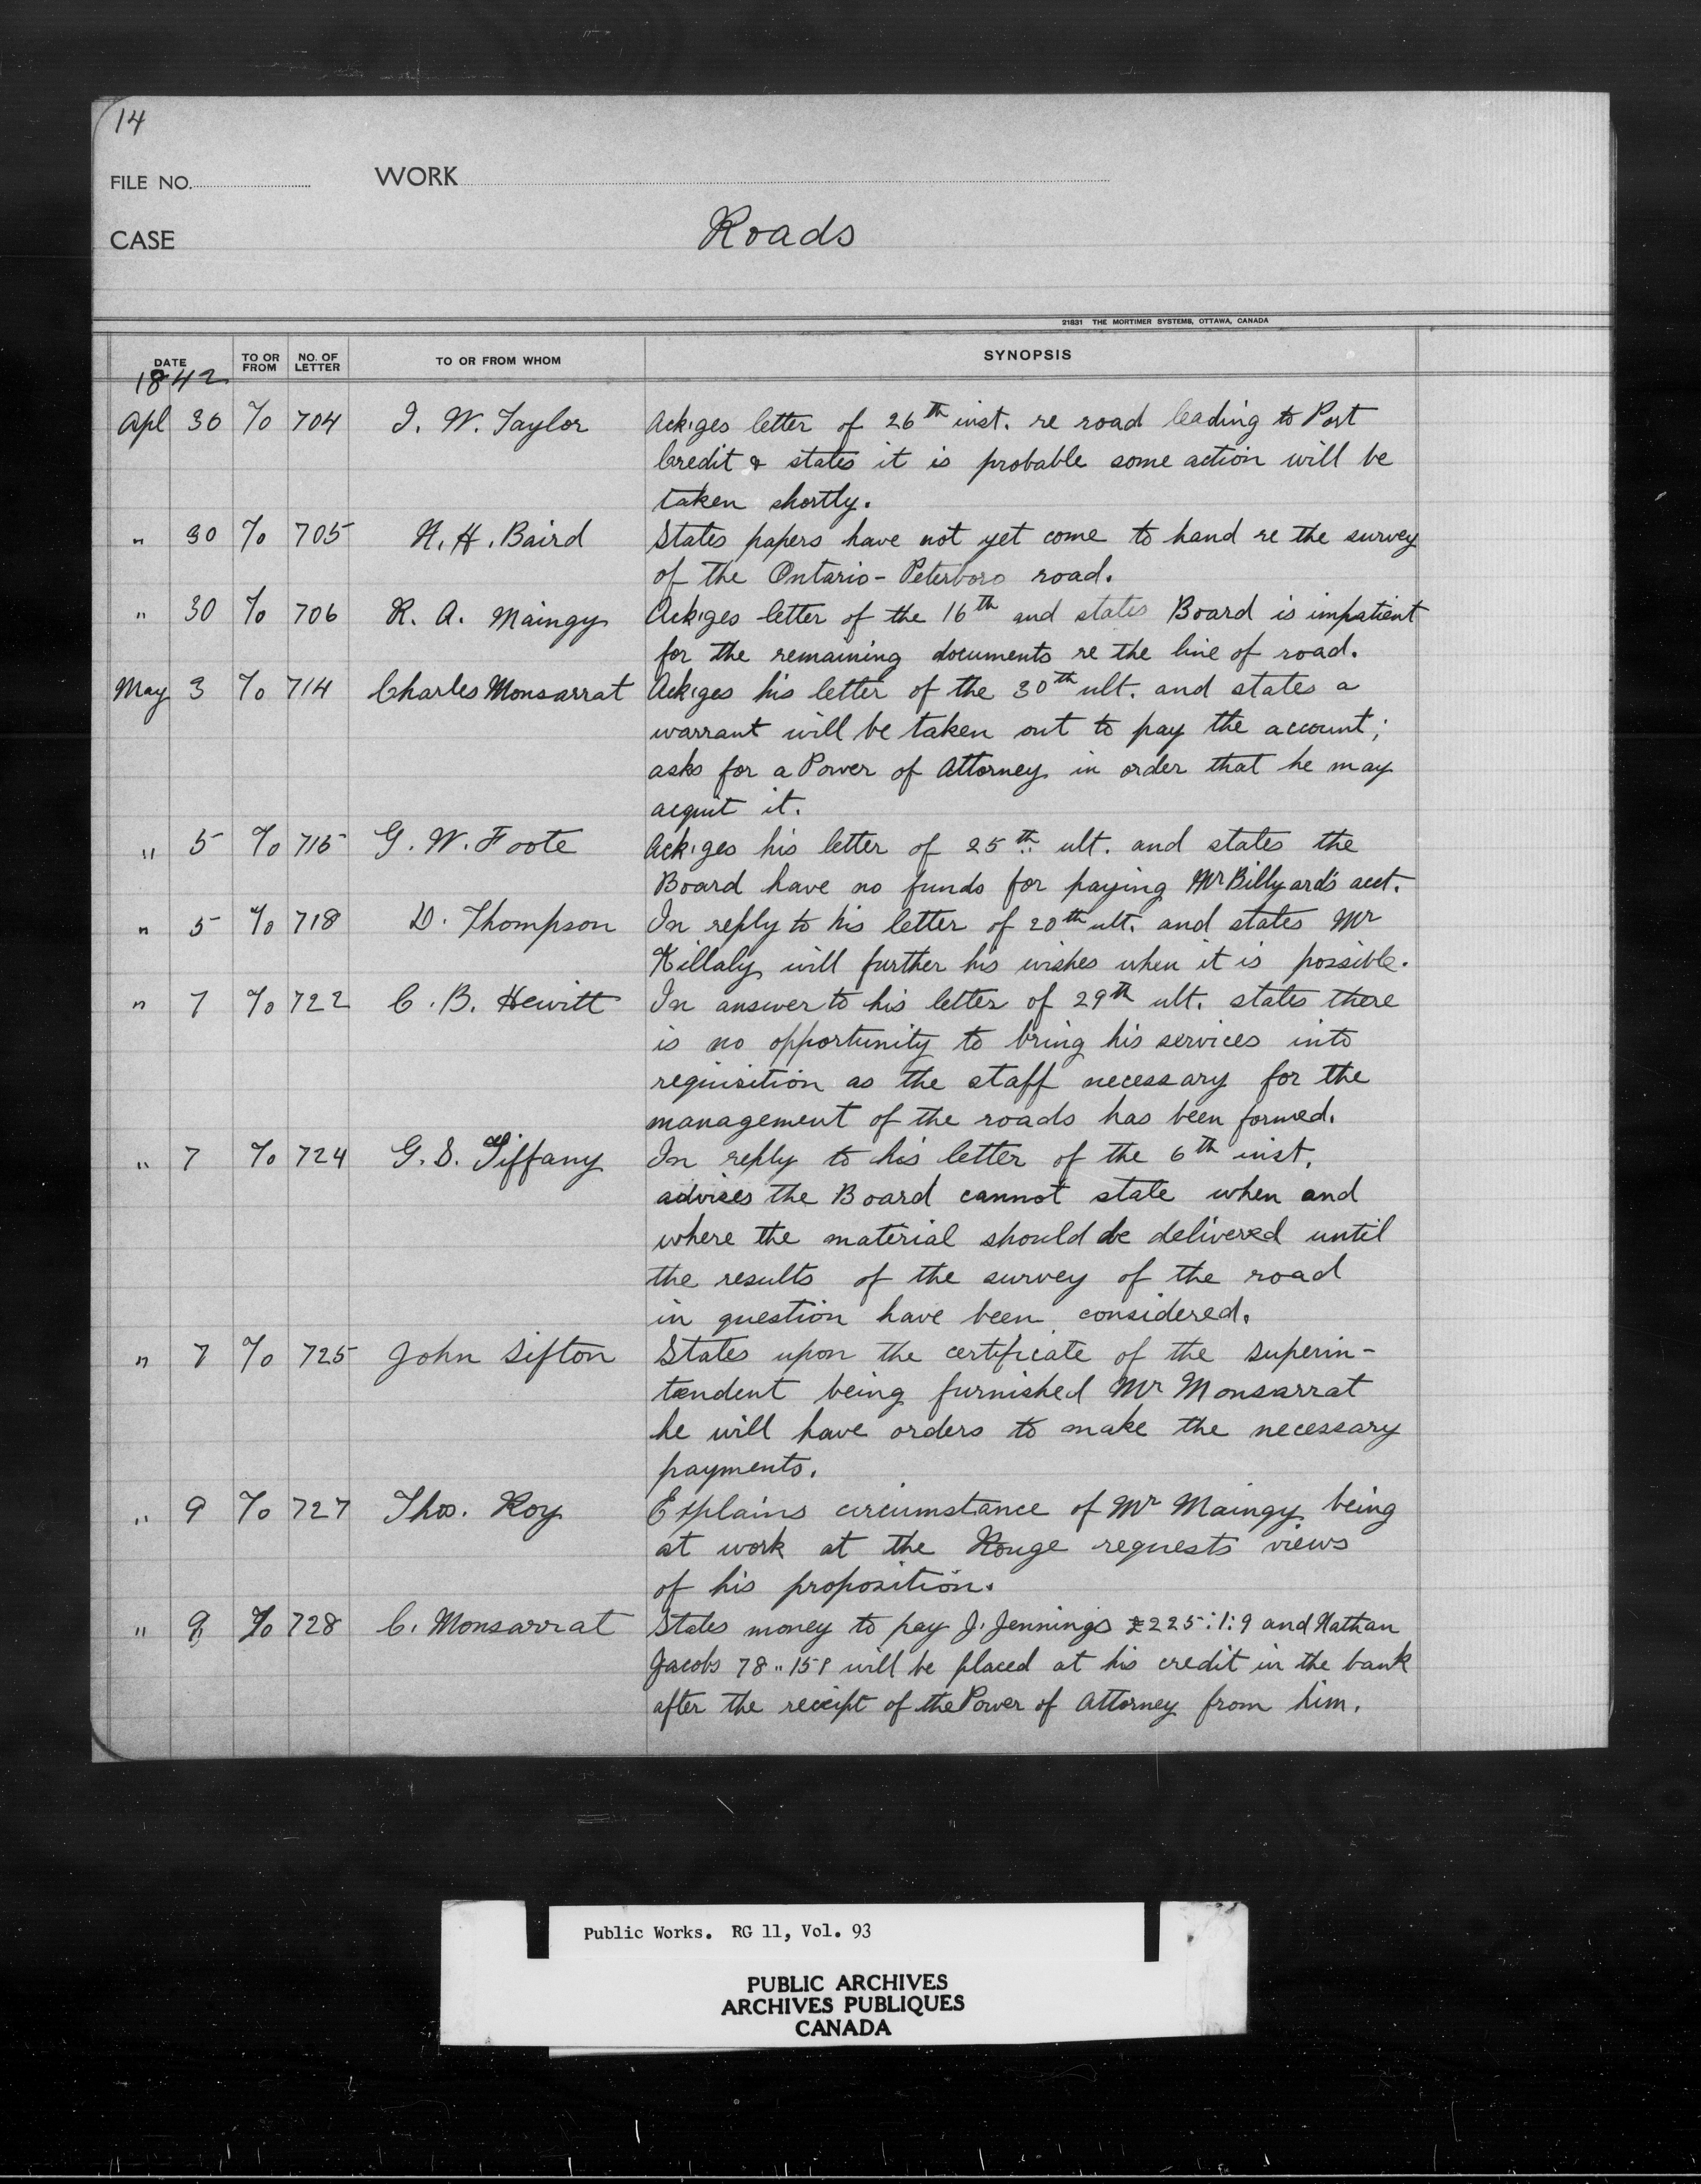 14
FILE NO. WORK
CASE Roads
21831 THE MORTIMER SYSTEMS, OTTAWA, CANADA
DATE TO OR FROM NO. OF LETTER TO OR FROM WHOM SYNOPSIS
1842
Apl 30 To 704 I. W. Taylor Ack'ges letter of 26th inst. re road leading to Port
Credit & states it is probable some action will be
taken shortly.
" 30 To 705 N. H. Baird States papers have not yet come to hand re the survey
of the Ontario-Peterboro road.
" 30 To 706 R. A. Maingy Ack'ges letter of the 16th and states Board is impatient
for the remaining documents re the line of road.
May 3 To 714 Charles Monsarrat Ack'ges his letter of the 30th ult. and states a
warrant will be taken out to pay the account;
asks for a Power of Attorney in order that he may
acquit it.
" 5 To 715 G. W. Foote Ack'ges his letter of 25th ult. and states the
Board have no funds for paying Mr Billyard's acct.
" 5 To 718 D. Thompson In reply to his letter of 20th ult. and states Mr
Killaly will further his wishes when it is possible.
" 7 To 722 C. B. Hewitt In answer to his letter of 29th ult. states there
is no opportunity to bring his services into
requisition as the staff necessary for the
management of the roads has been formed.
" 7 To 724 G. S. Tiffany In reply to his letter of the 6th inst.
advises the Board cannot state when and
where the material should be delivered until
the results of the survey of the road
in question have been considered.
" 7 To 725 John Sifton States upon the certificate of the superin-
tendent being furnished Mr Monsarrat
he will have orders to make the necessary
payments.
" 9 To 727 Thos. Roy Explains circumstance of Mr Maingy being
at work at the Rouge requests views
of his proposition.
" 9 To 728 C. Monsarrat States money to pay J. Jennings £225:1:9 and Nathan
Jacobs 78"15 will be placed at his credit in the bank
after the receipt of the Power of Attorney from him.
Public Works. RG 11, Vol. 93
PUBLIC ARCHIVES
ARCHIVES PUBLIQUES
CANADA